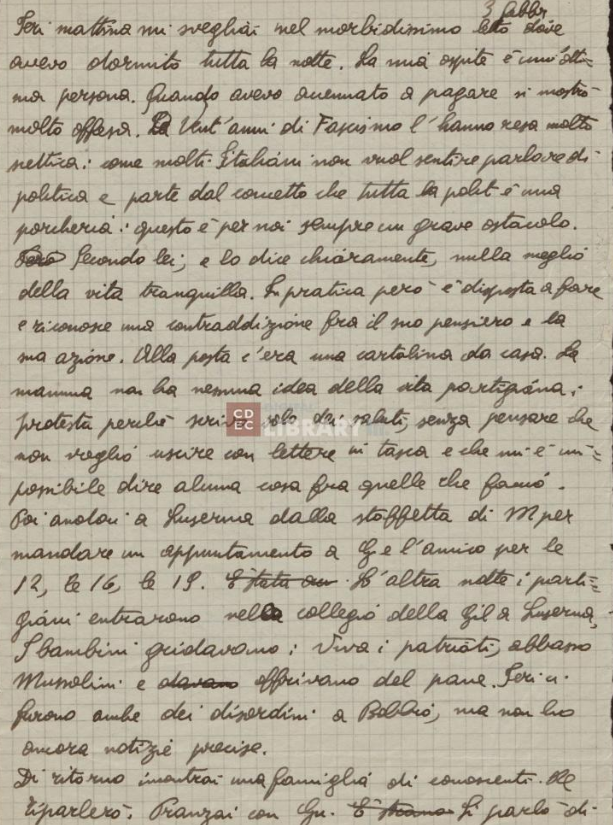 3 febbr
Ieri mattina mi svegliai nel morbidissimo letto dove
avevo dormito tutta la notte. La mia ospite è un'otti=
ma persona. Quando avevo accennato a pagare si mostrò
molto offesa. Vent'anni di Fascismo l'hanno resa molto
scettica: come molti Italiani non vuol sentire parlare di
politica e parte dal concetto che tutta la polit è una
porcheria: questo è per noi sempre un grave ostacolo.
Secondo lei, e lo dice chiaramente, nulla meglio
della vita tranquilla. In pratica però è disposta a fare
e riconosce una contraddizione fra il suo pensiero e la
sua azione. Alla posta c'era una cartolina da casa. La
mamma non ha nessuna idea della vita partigiana;
protesta perchè scrivo solo dei saluti, senza pensare che
non voglio uscire con lettere in tasca e che mi è im=
possibile dire alcuna cosa fra quelle che faccio.
Poi andai a Luserna dalla staffetta di M per
mandare un appuntamento a G e l'amico per le
12, le 16, le 19. L'altra notte i parti=
giani entrarono nel collegio della Gil a Luserna,
I bambini gridavano: Viva i patrioti, abbasso
Mussolini e offrivano del pane. Ieri ci
furono anche dei disordini a Bobbio, ma non ho
ancora notizie precise.
Di ritorno incontrai una famiglia di conoscenti. Ne
riparlerò. Pranzai con Gu. Si parlò di
CD
EC
LIBRARY